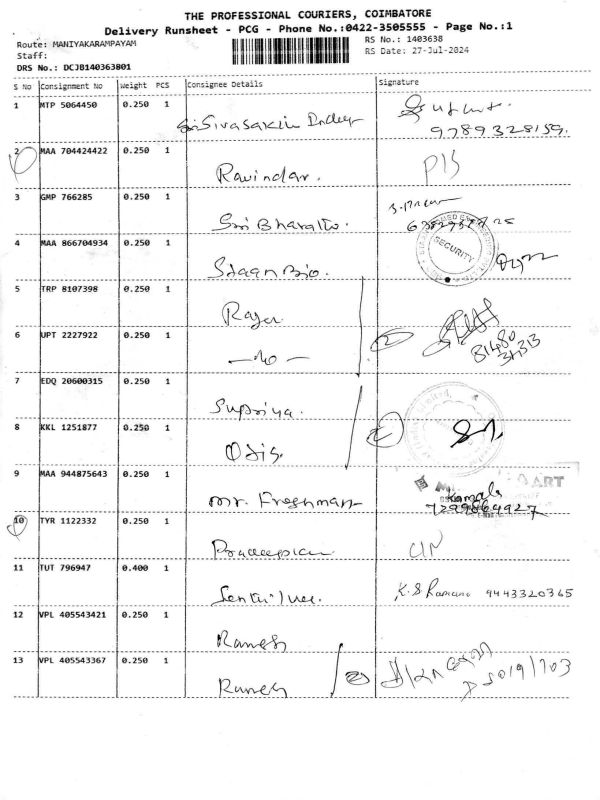 THE PROFESSIONAL COURIERS, COIMBATORE
Delivery Runsheet - PCG - Phone No.:0422-3505555 - Page No.:1
Route: MANIYAKARAMPAYAM RS No.: 1403638
Staff: RS Date: 27-Jul-2024
DRS No.: DCJB140363801
S No Consignment No Weight PCS Consignee Details Signature
1 MTP 5064450 0.250 1
9789328159.
2 MAA 704424422 0.250 1 Ravindar.
3 GMP 766285 0.250 1 Sri Bharath.
4 MAA 866704934 0.250 1 SECURITY
5 TRP 8107398 0.250 1 Raja
6 UPT 2227922 0.250 1 81480
34313
7 EDQ 20600315 0.250 1 Supriya.
8 KKL 1251877 0.250 1 Otis.
9 MAA 944875643 0.250 1 Mr. Freshman ART
Kamala
7299864927
10 TYR 1122332 0.250 1
11 TUT 796947 0.400 1 K.S Ramana 9443320365
12 VPL 405543421 0.250 1 Ramesh
13 VPL 405543367 0.250 1 Ramesh